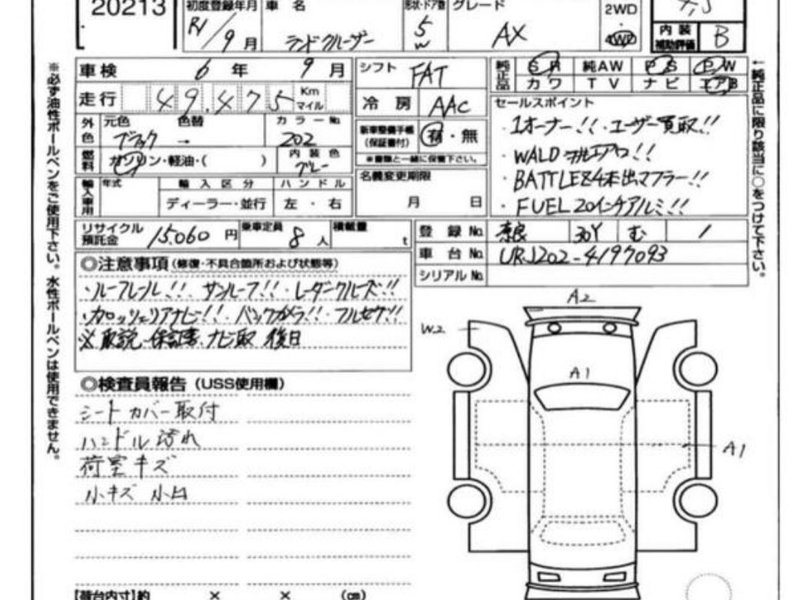 20213
初度登録年月
R1/9月
車名
ランドクルーザー
形状・ドア数
5W
グレード
AX
2WD
4WD
内装補助評価
B
車検 6年 9月
シフト FAT
純正品
SR 純AW PS PW
カワ TV ナビ エアB
走行 49,475 Km マイル
冷房 AAC
セールスポイント
・1オーナー!!・ユーザー買取!!
・WALDフルエアロ!!
・BATTLEZ4本出マフラー!!
・FUEL20インチアルミ!!
外色
元色 色替 カラーNo
ブラック → 202
新車整備手帳(保証書付) 有・無
※書類と一緒に保管下さい。
燃料
ガソリン・軽油・( )
内装色
グレー
名義変更期限
月 日
輸入車用
年式 輸入区分 ハンドル
ディーラー・並行 左・右
リサイクル預託金 15,060円
乗車定員 8人
積載量 t
登録No. 奈良 301 む /
車台No. URJ202-4197093
シリアルNo.
◎注意事項(修復・不具合箇所および状態等)
・ルーフレール!! サンルーフ!!・レーダークルーズ!!
・カロッツェリアナビ!! バックカメラ!! フルセグ!!
※取説・保証書・ナビ取 後日
◎検査員報告(USS使用欄)
シートカバー取付
ハンドル汚れ
荷室キズ
小キズ 小凹
A2
W2
A1
A1
【荷台内寸】約 × × (cm)
※必ず油性ボールペンをご使用下さい。水性ボールペンは使用できません。
←純正品に限り該当に○をつけて下さい。